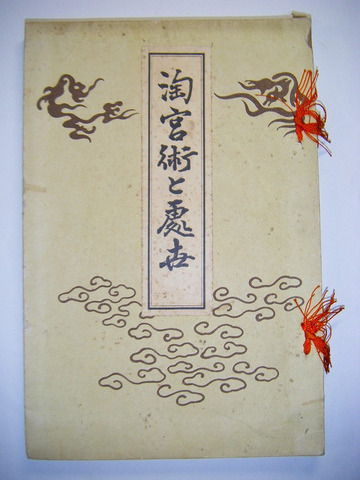 淘宮術と處世